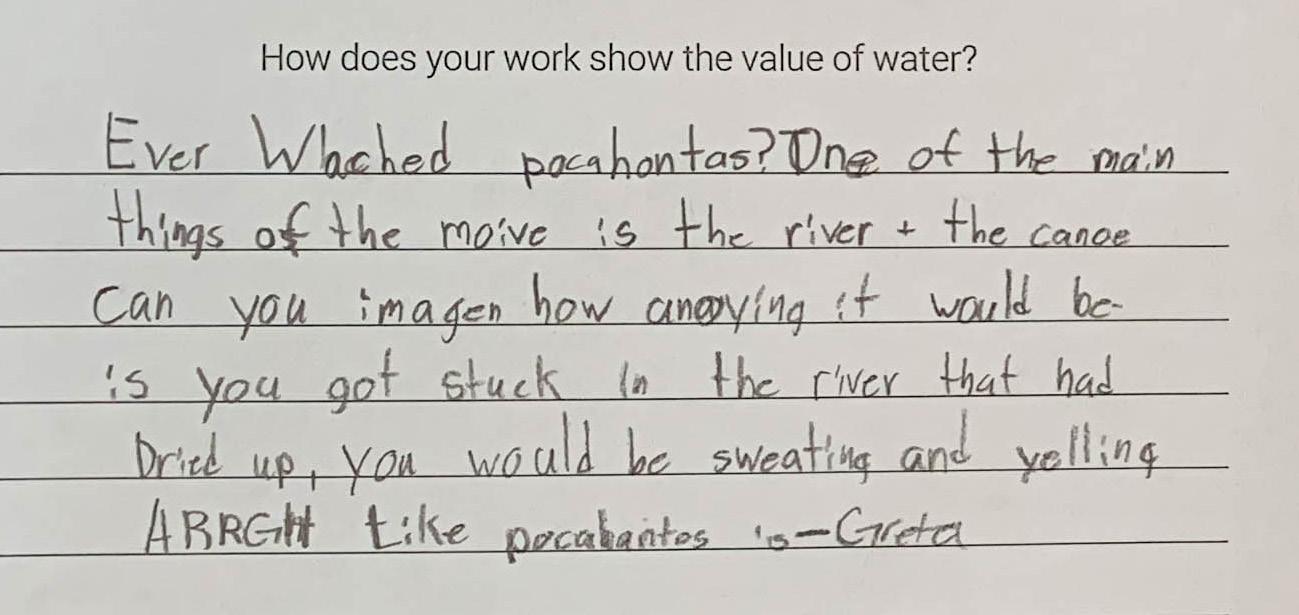 How does your work show the value of water?
Ever Whached pocahontas? One of the main
things of the moive is the river + the canoe
Can you imagen how anoying it would be
is you got stuck in the river that had
Dried up, you would be sweating and yelling
ARRGH Like pocahantos is - Greta